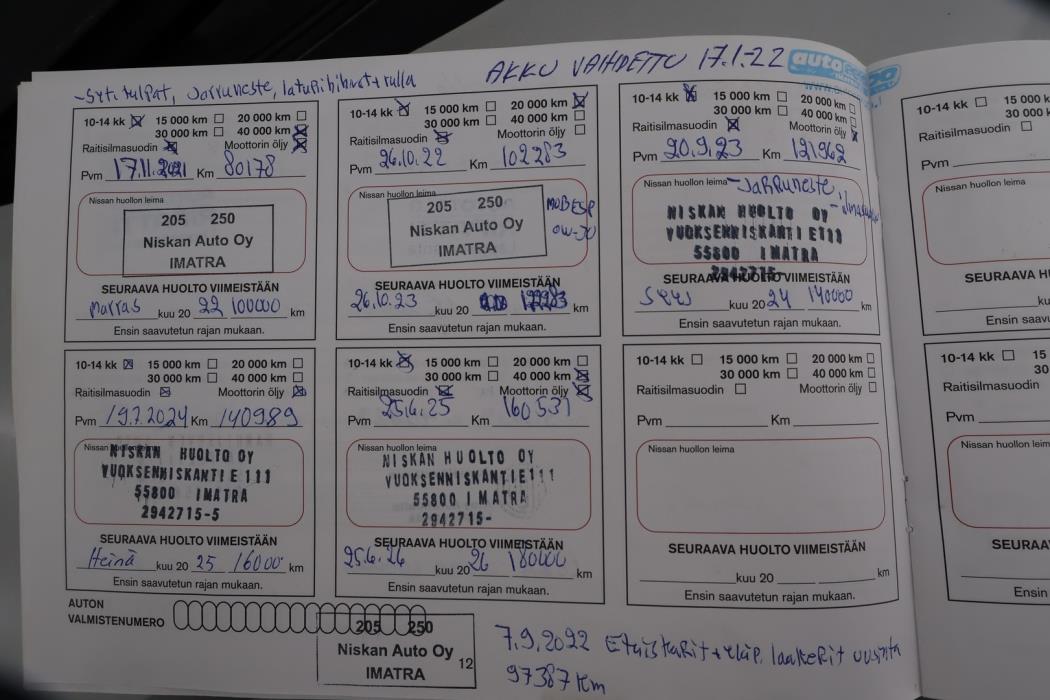 AKKU VAIHDETTU 17.1-22
-Syt. tulpat, Jarruneste, laturihihnat + rulla
10-14 kk 15 000 km 20 000 km
30 000 km 40 000 km
Raitisilmasuodin Moottorin öljy
Pvm 17.11.2021 Km 80178
Nissan huollon leima
205 250
Niskan Auto Oy
IMATRA
SEURAAVA HUOLTO VIIMEISTÄÄN
marras kuu 20 22 100000 km
Ensin saavutetun rajan mukaan.
10-14 kk 15 000 km 20 000 km
30 000 km 40 000 km
Raitisilmasuodin Moottorin öljy
Pvm 26.10.22 Km 102283
Nissan huollon leima
205 250
Niskan Auto Oy
IMATRA
0W-30
SEURAAVA HUOLTO VIIMEISTÄÄN
26.10.23 kuu 20 km
Ensin saavutetun rajan mukaan.
10-14 kk 15 000 km 20 000 km
30 000 km 40 000 km
Raitisilmasuodin Moottorin öljy
Pvm 20.9.23 Km 121962
Nissan huollon leima -Jarruneste
NISKAN HUOLTO OY
VUOKSENNISKANTIE111
55800 IMATRA
2942715-
SEURAAVA HUOLTO VIIMEISTÄÄN
Syys kuu 20 24 140000 km
Ensin saavutetun rajan mukaan.
10-14 kk 15 000 km 20 000 km
30 000 km 40 000 km
Raitisilmasuodin Moottorin öljy
Pvm 19.7.2024 Km 140989
Nissan huollon leima
NISKAN HUOLTO OY
VUOKSENNISKANTIE 111
55800 IMATRA
2942715-5
SEURAAVA HUOLTO VIIMEISTÄÄN
Heinä kuu 20 25 16000 km
Ensin saavutetun rajan mukaan.
10-14 kk 15 000 km 20 000 km
30 000 km 40 000 km
Raitisilmasuodin Moottorin öljy
Pvm 25.6.25 Km 160531
Nissan huollon leima
NISKAN HUOLTO OY
VUOKSENNISKANTIE111
55800 IMATRA
2942715-
SEURAAVA HUOLTO VIIMEISTÄÄN
25.6.26 kuu 20 26 180000 km
Ensin saavutetun rajan mukaan.
10-14 kk 15 000 km 20 000 km
30 000 km 40 000 km
Raitisilmasuodin Moottorin öljy
Pvm Km
Nissan huollon leima
SEURAAVA HUOLTO VIIMEISTÄÄN
kuu 20 km
Ensin saavutetun rajan mukaan.
AUTON
VALMISTENUMERO
205 250
Niskan Auto Oy
IMATRA
12
7.9.2022 Etuiskarit + yläp. laakerit uusinta
97387 km
10-14 kk 15 000 k
30 000
Raitisilmasuodin
Pvm
Nissan huollon leima
SEURAAVA H
ku
Ensin saavu
10-14 kk 15
30
Raitisilmasuodin
Pvm
Nissan huollon leim
SEURAA
Ensin